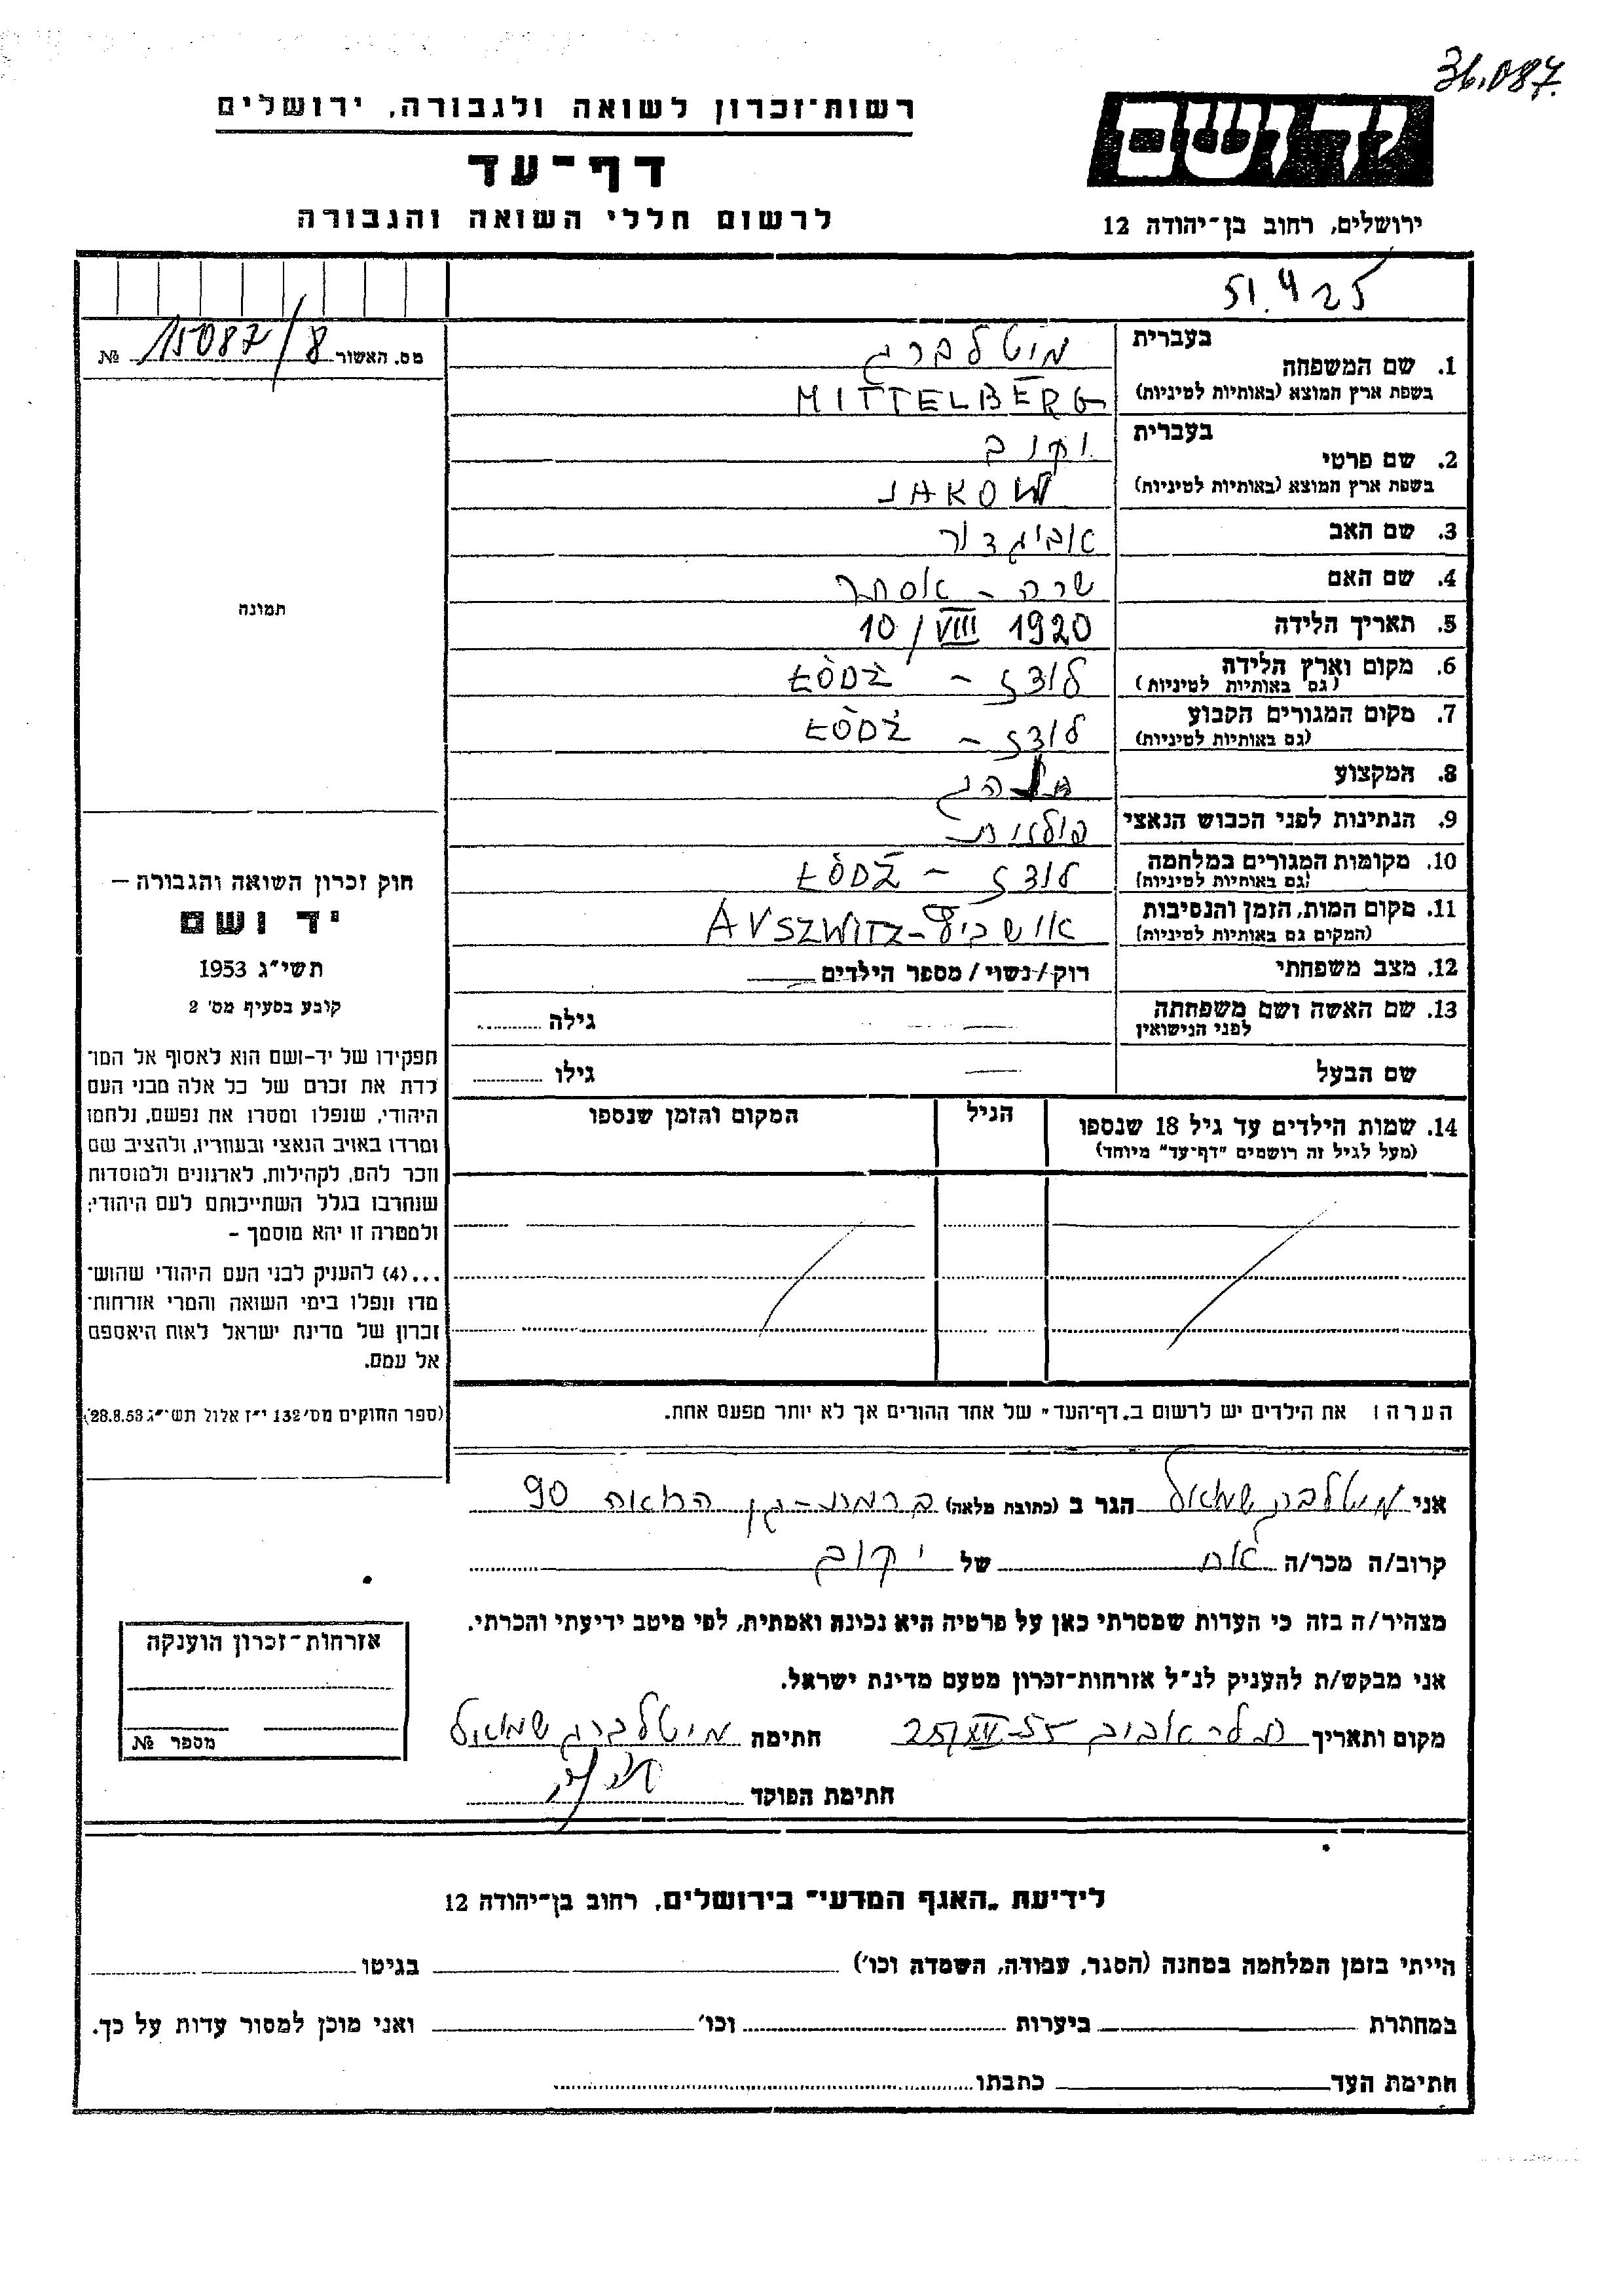 36.087.
רשות־זכרון לשואה ולגבורה, ירושלים
דף־עד
לרשום חללי השואה והגבורה
ידושם
ירושלים, רחוב בן־יהודה 12
מס. האשור 15087/8 №
1. שם המשפחה
בעברית מיטלברג
בשפת ארץ המוצא (באותיות לטיניות) MITTELBERG
2. שם פרטי
בעברית יקוב
בשפת ארץ המוצא (באותיות לטיניות) JAKOW
3. שם האב אביגדור
4. שם האם שרה – אסתר
5. תאריך הלידה 10/VIII 1920
6. מקום וארץ הלידה לודז – ŁÒDŹ
(גם באותיות לטיניות)
7. מקום המגורים הקבוע לודז – ŁÒDŹ
(גם באותיות לטיניות)
8. המקצוע
9. הנתינות לפני הכבוש הנאצי פולנית
10. מקומות המגורים במלחמה לודז – ŁÒDŹ
(גם באותיות לטיניות)
11. מקום המות, הזמן והנסיבות אושביץ – AVSZWITZ
(המקום גם באותיות לטיניות)
12. מצב משפחתי רווק/נשוי/מספר הילדים
13. שם האשה ושם משפחתה גילה
לפני הנישואין
שם הבעל גילו
14. שמות הילדים עד גיל 18 שנספו הגיל המקום והזמן שנספו
(מעל לגיל זה רושמים "דף־עד" מיוחד)
הערה: את הילדים יש לרשום ב„דף־העד" של אחד ההורים אך לא יותר מפעם אחת.
תמונה
חוק זכרון השואה והגבורה –
יד ושם
תשי"ג 1953
קובע בסעיף מס' 2
תפקידו של יד-ושם הוא לאסוף אל המו־
לדת את זכרם של כל אלה מבני העם
היהודי, שנפלו ומסרו את נפשם, נלחמו
ומרדו באויב הנאצי ובעוזריו, ולהציב שם
וזכר להם, לקהילות, לארגונים ולמוסדות
שנחרבו בגלל השתייכותם לעם היהודי;
ולמטרה זו יהא מוסמך –
...(4) להעניק לבני העם היהודי שהוש־
מדו ונפלו בימי השואה והמרי אזרחות־
זכרון של מדינת ישראל לאות היאספם
אל עמם.
(ספר החוקים מס' 132 י"ז אלול תשי"ג 28.8.53)
אני מיטלברג שמואל הגר ב (כתובת מלאה) ברמת-גן הרואה 90
קרוב/ה מכר/ה אח של יקוב
מצהיר/ה בזה כי העדות שמסרתי כאן על פרטיה היא נכונה ואמתית, לפי מיטב ידיעתי והכרתי.
אני מבקש/ת להעניק לנ"ל אזרחות־זכרון מטעם מדינת ישראל.
מקום ותאריך תל-אביב 25/XII-55 חתימה מיטלברג שמואל
חתימת הפוקד
אזרחות־זכרון הוענקה
מספר №
לידיעת „האגף המדעי" בירושלים, רחוב בן־יהודה 12
הייתי בזמן המלחמה במחנה (הסגר, עבודה, השמדה וכו') בגיטו
במחתרת ביערות וכו' ואני מוכן למסור עדות על כך.
חתימת העד כתבתו